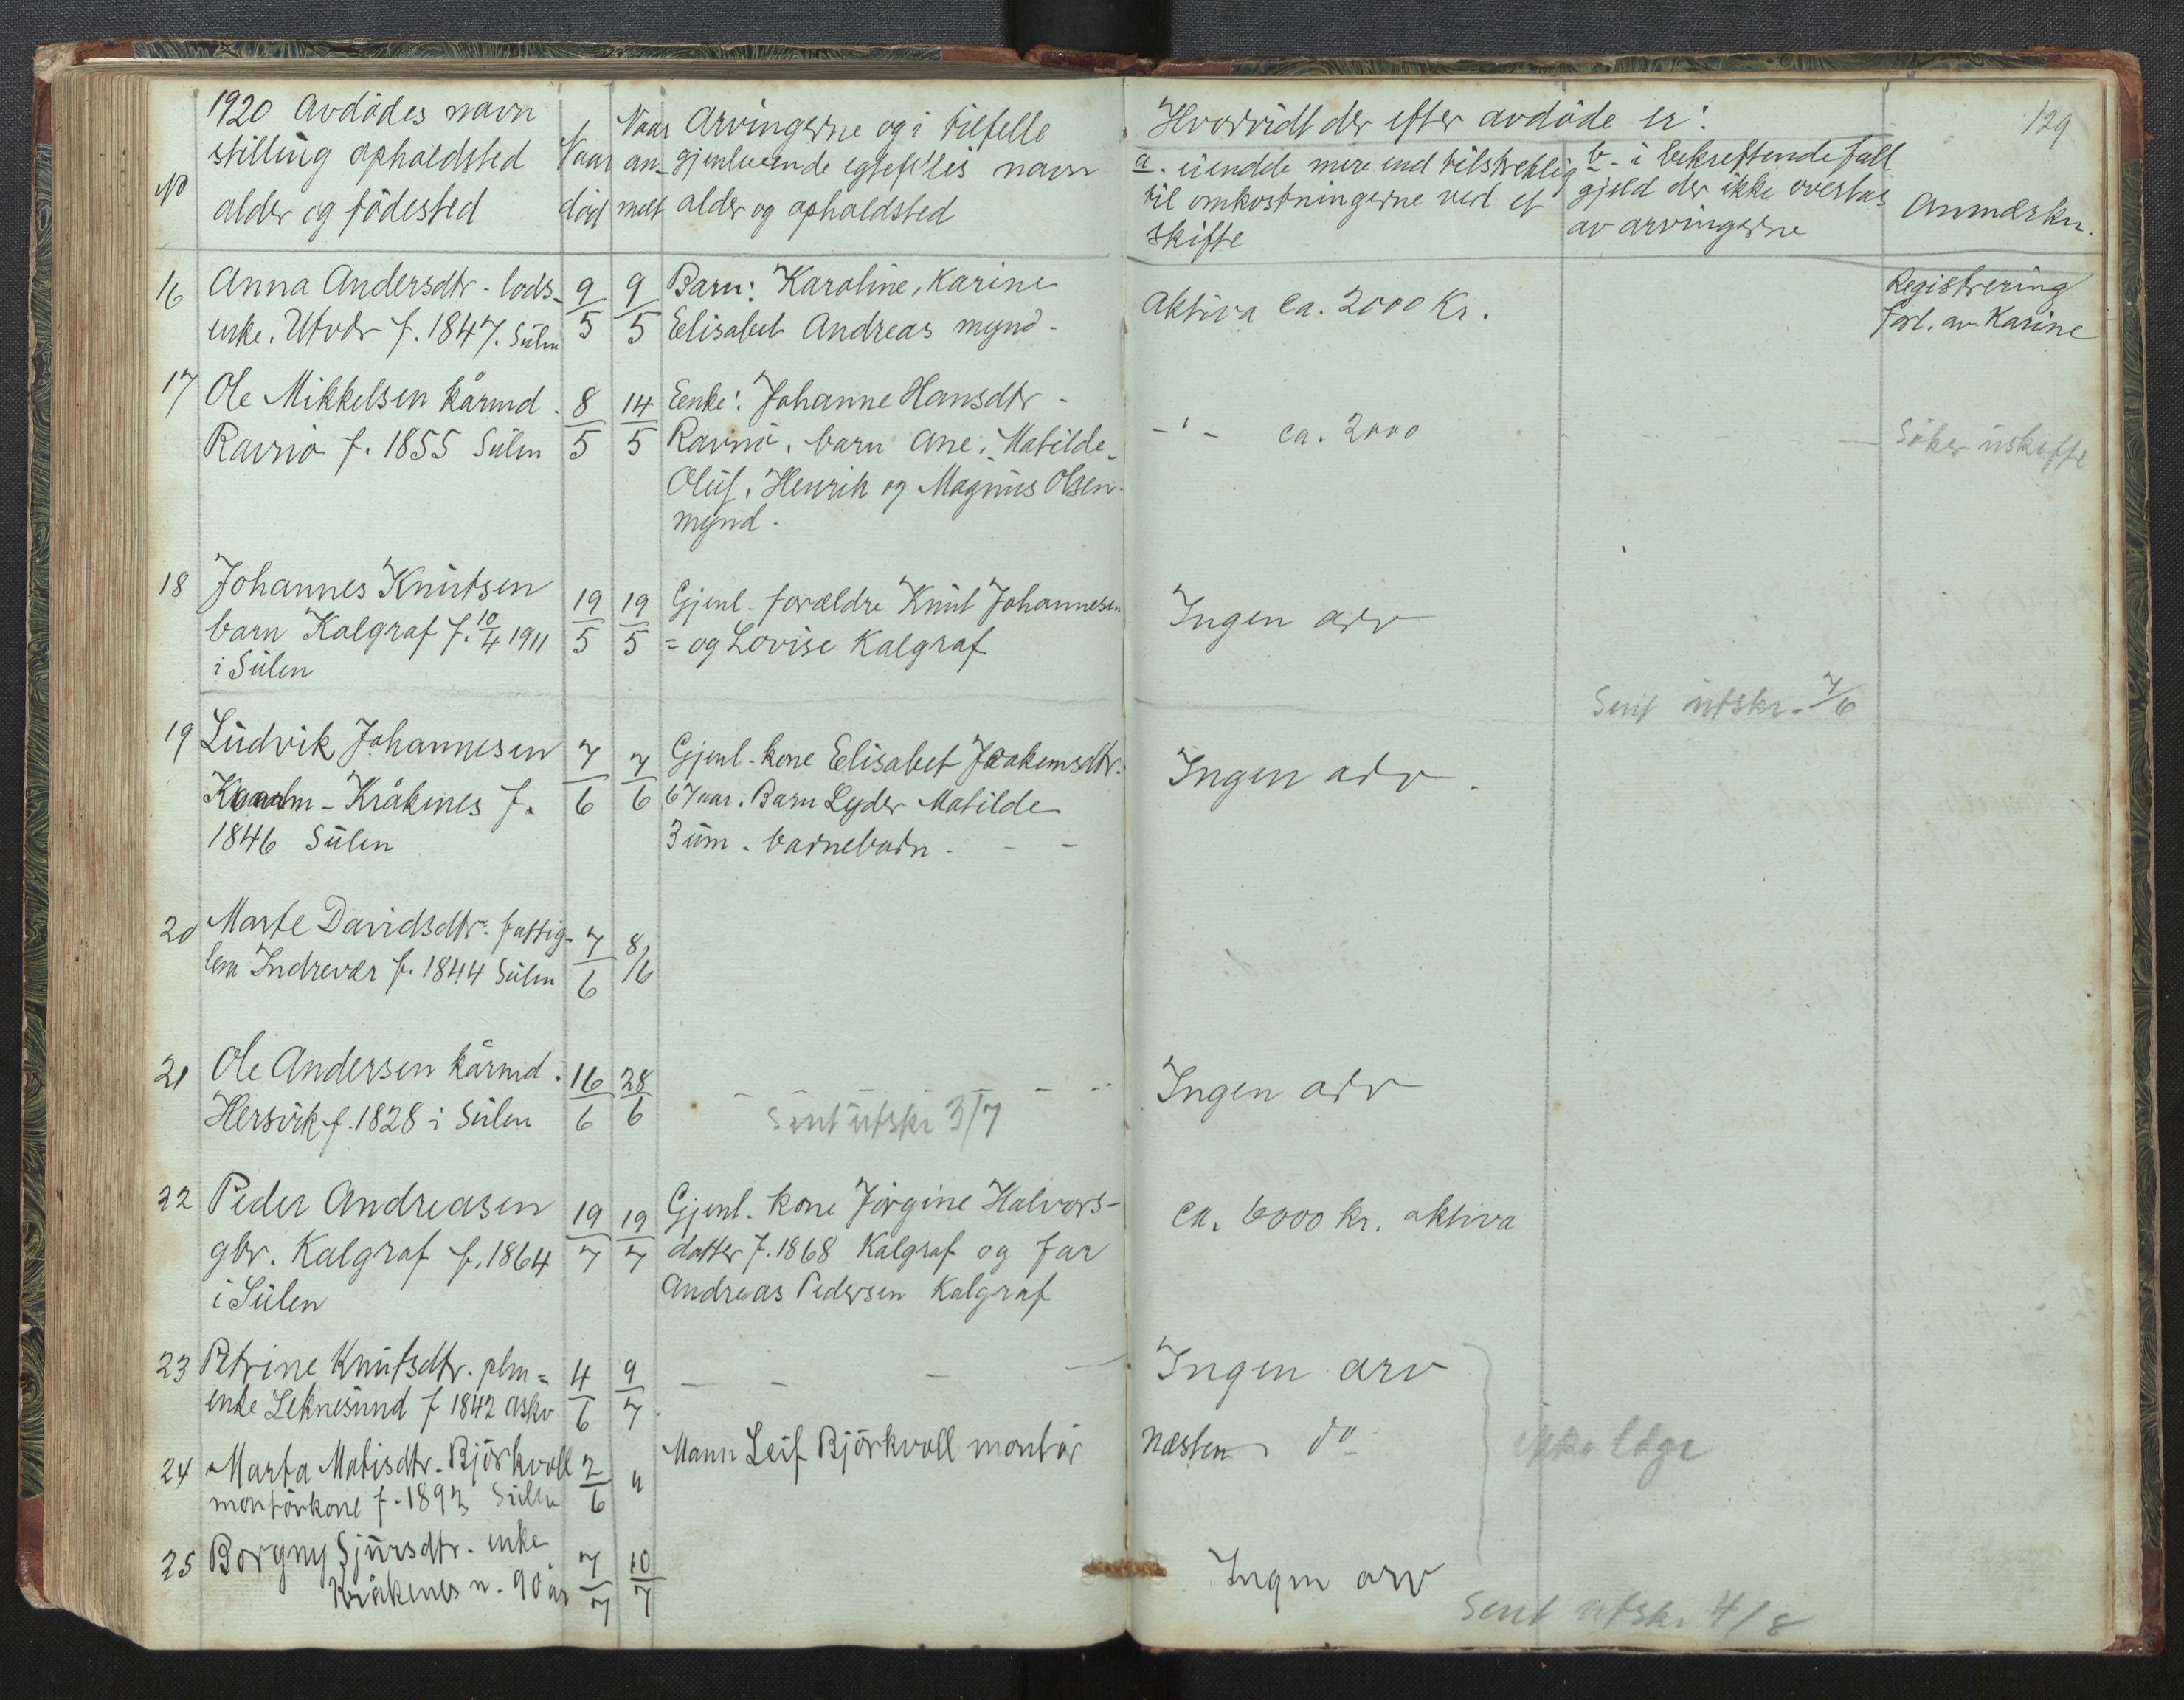 129
1920 Avdödes navn
stilling opholdsted
alder og födested
No
Naar
död
Naar
an-
melt
Arvingerne og i tilfelle
gjenlevende egtefelles navn
alder og opholdsted
Hvorvidt der efter avdöde er:
a. eiendele mere end tilstreklig
til omkostningerne ved et
skifte
b. i bekreftende fall
gjeld der ikke overtas
av arvingerne
Anmerkn.
16 Anna Andersdtr - lods- 9/5 9/5 Barn: Karoline, Karine
enke. Utvær f. 1847. Sulen Elisabet Andreas mynd -
Aktiva ca. 2000 Kr.
Registrering
forl. av Karine
17 Ole Mikkelsen kårmd. 8/5 14/5 Eenke: Johanne Hansdtr -
Ravnö f. 1855 Sulen Ravnö. barn Ane, Matilde
Oluf, Henrik og Magnus Olsen -
mynd -
-"- ca. 2000
Söker uskifte
18 Johannes Knutsen 19/5 19/5 Gjenl. forældre Knut Johannesen
barn Kalgraf f. 10/4 1911 = og Lovise Kalgraf
i Sulen
Ingen arv
Sent utskr. 7/6
19 Ludvik Johannesen 7/6 7/6 Gjenl. kone Elisabet Joakemsdtr.
Kråkenes f. 67 aar. Barn Lyder Matilde
1846 Sulen 3 um. barnebarn - - -
Ingen arv.
20 Marte Davidsdtr. fattig- 7/6 8/6
lem Indrevær f. 1844 Sulen
21 Ole Andersen kårmd. 16/6 28/6 - - - - - -
Hersvik f. 1828 i Sulen
Sent utskr 3/7
Ingen arv
22 Peder Andreasen 19/7 19/7 Gjenl. kone Jörgine Halvors-
gbr. Kalgraf f. 1864 datter f. 1868 Kalgraf og far
i Sulen Andreas Pedersen Kalgraf
ca. 6000 kr. aktiva
23 Petrine Knutsdtr. plm= 4/6 9/7 - - - -
enke Leknesund f 1842 Askv
Ingen arv
24 Marta Matisdtr. Björkvoll 2/6 " Mann Leif Björkvoll montör
montörkone f. 1893 Sulen
Næsten do
ikke læge
25 Borgny Sjursdtr. enke 7/7 10/7
Kråkenes n. 90 år
Ingen arv
Sent utskr 4/8